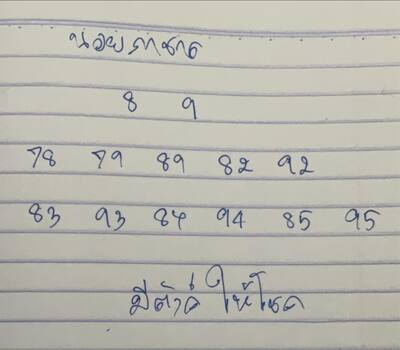 นอยกาชาด
8 9
78 79 89 82 92
83 93 84 94 85 95
มีตังค์ ให้โชค